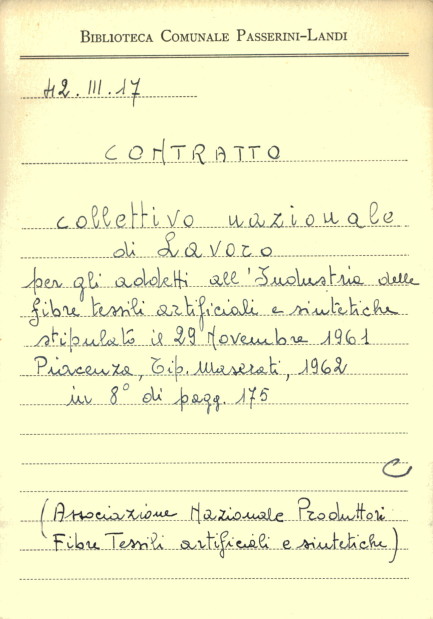 BIBLIOTECA COMUNALE PASSERINI-LANDI
42.III.17
CONTRATTO
collettivo nazionale
di Lavoro
per gli addetti all'Industria delle
fibre tessili artificiali e sintetiche
stipulato il 29 Novembre 1961
Piacenza, Tip. Maserati, 1962
in 8° di pagg. 175
C
(Associazione Nazionale Produttori
Fibre Tessili artificiali e sintetiche)